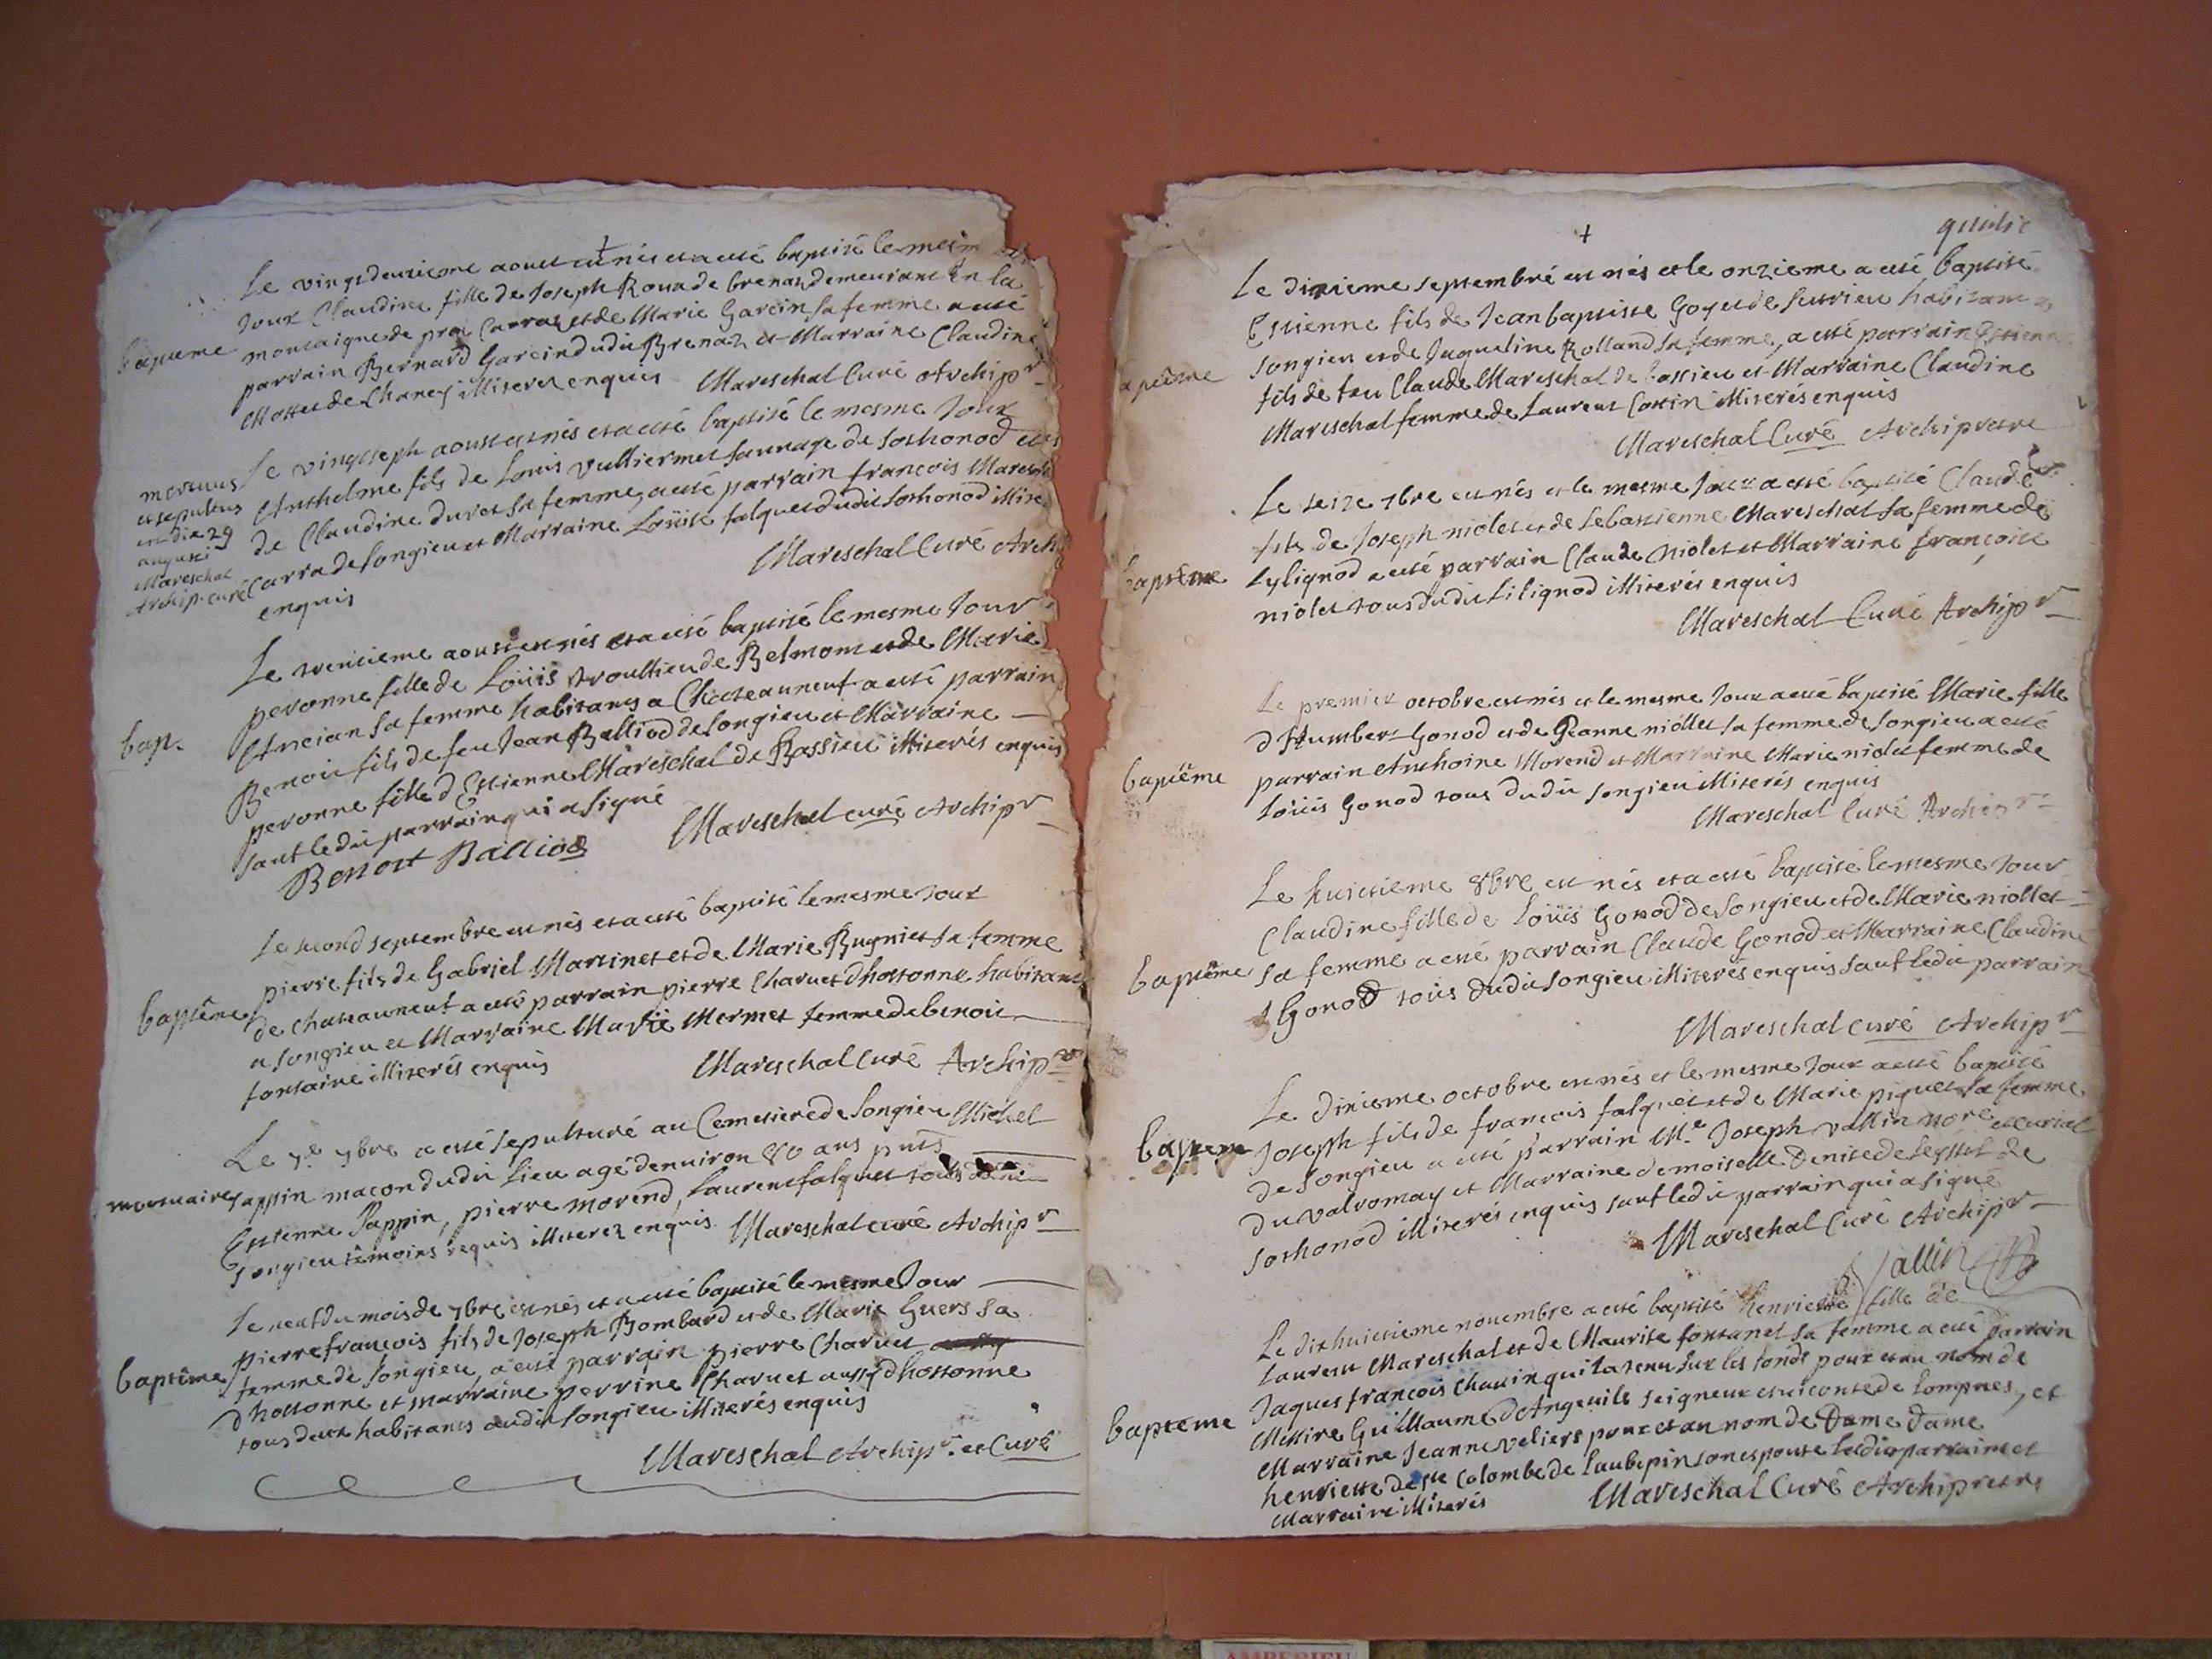 Le vingtdeuxieme aoust est nés et a esté baptisé le mesm
Jour Claudine fille de Joseph Roux de brenaz demeurant En la
bapteme
montaigne de prez Carraz et de Marie Garcin sa femme a esté
parrain Bernard Garcin dudit Brenaz et Marraine Claudine
Mottet de Chaney illiterez enquis Mareschal Curé Archipr
Le vingtseph aoust est nés et a esté baptisé le mesme Jour
Anthelme fils de Louis vulliermet sauuage de sothonod et
de Claudine duret sa femme, a esté parrain francois
Carra de songieu et Marraine Loüise falquet dudit sothonod illite
enquis
Mareschal Curé Arch
mortuus
et sepultus
in die 29
augusti
Mareschal
Archip. curé
Le trentieme aoust est nés et a esté baptisé le mesme Jour
peronne fille de Loüis troullieu de Belmont et de Marie
Ancian sa femme habitans a Chateauneuf a esté parrain
bap.
Benoit fils de feu Jean Balliod de songieu et Marraine
peronne fille d'Estienne Mareschal de Bassieu illiterés enquis
sauf ledit parrain qui a signé
Benoit Balliod Mareschal curé Archipr
Le second septembre est nés et a esté baptisé le mesme Jour
pierre fils de Gabriel Martinet et de Marie Bugniet sa femme
baptême
de chateauneuf a esté parrain pierre Charuet d'hottonne habitant
a songieu et Marraine Marie Mermet femme de benoit
fontaine illiterés enquis Mareschal Curé Archipr
Le 7e 7bre a esté sepulturé au Cemetiere de songieu Michel
mortuaire
pappin macon dudit Lieu agé denuiron 80 ans
Estienne Pappin, pierre morend, Laurent falquet tous
songieu témoins requis illiterez enquis Mareschal curé Archipr
Le neuf du mois de 7bre est nés et a esté baptisé le mesme Jour
pierre francois fils de Joseph Bombard et de Marie Guers sa
baptême
femme de songieu, a esté parrain pierre Charuet
d'hottonne et marraine perrine Charuet aussy d'hottonne
tous deux habitants audit songieu illiterés enquis
Mareschal Archipr. et Curé
Le dixieme septembre est nés et le onzieme a esté baptisé
Estienne fils de Jean baptiste Goyet de sutrieu habitant
songieu et de Jaqueline Rolland sa femme, a esté parrain Estienne
apteme
fils de feu Claude Mareschal de bassieu et Marraine Claudine
Mareschal femme de Laurent Cottin illiterés enquis
Mareschal Curé Archipretre
Le seize 7bre est nés et le mesme Jour a esté baptisé Claude
fils de Joseph niolet et de sebastienne Mareschal sa femme de
baptême
Lylignod a esté parrain Claude niolet et Marraine françoise
niolet tous dudit Lilignod illiterés enquis
Mareschal Curé Archipr
Le premier octobre est nés et le mesme Jour a esté baptisé Marie fille
d'Humbert Gonod et de Jeanne niollet sa femme de songieu a esté
baptême
parrain Anthoine Morend et Marraine Marie niolet femme de
Loüis Gonod tous dudit songieu illiterés enquis
Mareschal Curé Archipr
Le huictieme 8bre est nés et a esté baptisé le mesme Jour
Claudine fille de Loüis Gonod de songieu et de Marie niollet
baptême
sa femme a esté parrain Claude Gonod et Marraine Claudine
Gonod tous dudit songieu illiterés enquis sauf ledit parrain
Mareschal curé Archipr
Le dixieme octobre est nés et le mesme Jour a esté baptisé
bapteme
Joseph fils de francois falquet et de Marie piquet sa femme
de songieu a esté parrain Me Joseph vallin nore et curial
du valromay et Marraine demoiselle Denise de seyssel de
sothonod illiterés enquis sauf ledit parrain qui a signé
Mareschal Curé Archipr
J Vallin
Le dixhuictieme nouembre a esté baptisé henriette fille de
Laurent Mareschal et de Maurise fontanel sa femme a esté parrain
Jaques francois Chauin qui la tenu sur les fonds pour et au nom de
bapteme
Messire Guillaume d'Angeuile seigneur et uiconte de Lompnes, et
Marraine Jeanne veliers pour et au nom de Dame Dame
henriette de ste Colombe de Laubepin son espouse lesdit parrain et
Marraine illiterés Mareschal Curé Archipretre
AMBERIEU